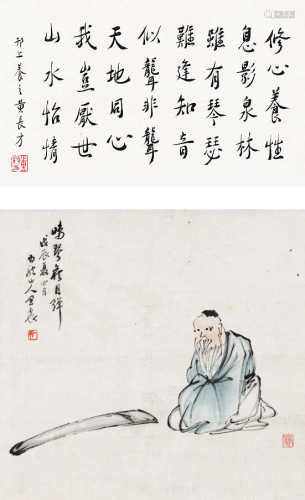 修心養性
息影泉林
雖有琴瑟
難逢知音
似聾非聾
天地同心
我豈厭世
山水怡情
邗上養之黃長方
戊辰